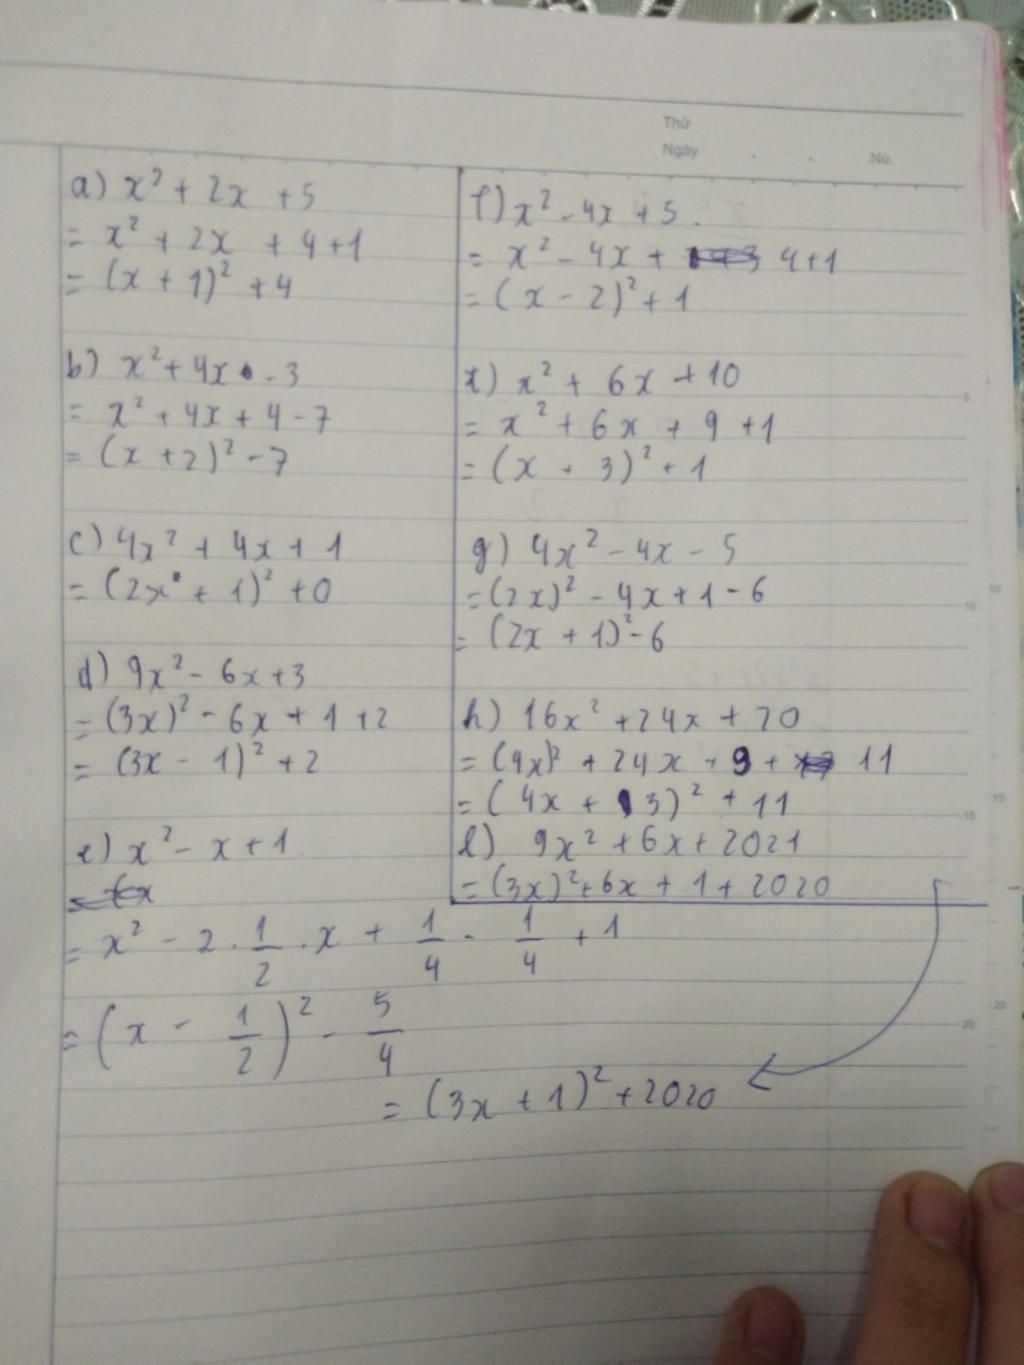 Thứ
Ngày
No.
a) x² + 2x + 5
= x² + 2x + 4 + 1
= (x + 1)² + 4
b) x² + 4x - 3
= x² + 4x + 4 - 7
= (x + 2)² - 7
c) 4x² + 4x + 1
= (2x + 1)² + 0
d) 9x² - 6x + 3
= (3x)² - 6x + 1 + 2
= (3x - 1)² + 2
e) x² - x + 1
= x² - 2 . 1/2 . x + 1/4 - 1/4 + 1
= (x - 1/2)² - 5/4
f) x² - 4x + 5.
= x² - 4x + 4 + 1
= (x - 2)² + 1
x² + 6x + 10
= x² + 6x + 9 + 1
= (x + 3)² + 1
g) 4x² - 4x - 5
= (2x)² - 4x + 1 - 6
= (2x + 1)² - 6
h) 16x² + 24x + 20
= (4x)² + 24x + 9 + 11
= (4x + 3)² + 11
l) 9x² + 6x + 2021
= (3x)² + 6x + 1 + 2020
= (3x + 1)² + 2020
5
10
15
20
10
15
20